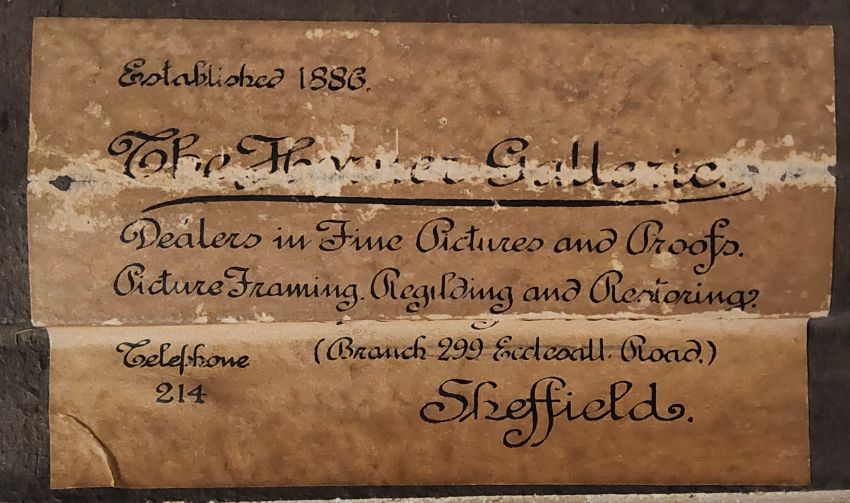 Established 1886.
The Galleries
Dealers in Fine Pictures and Proofs.
Picture Framing. Regilding and Restoring.
(Branch 299 Ecclesall Road.)
Telephone
214
Sheffield.